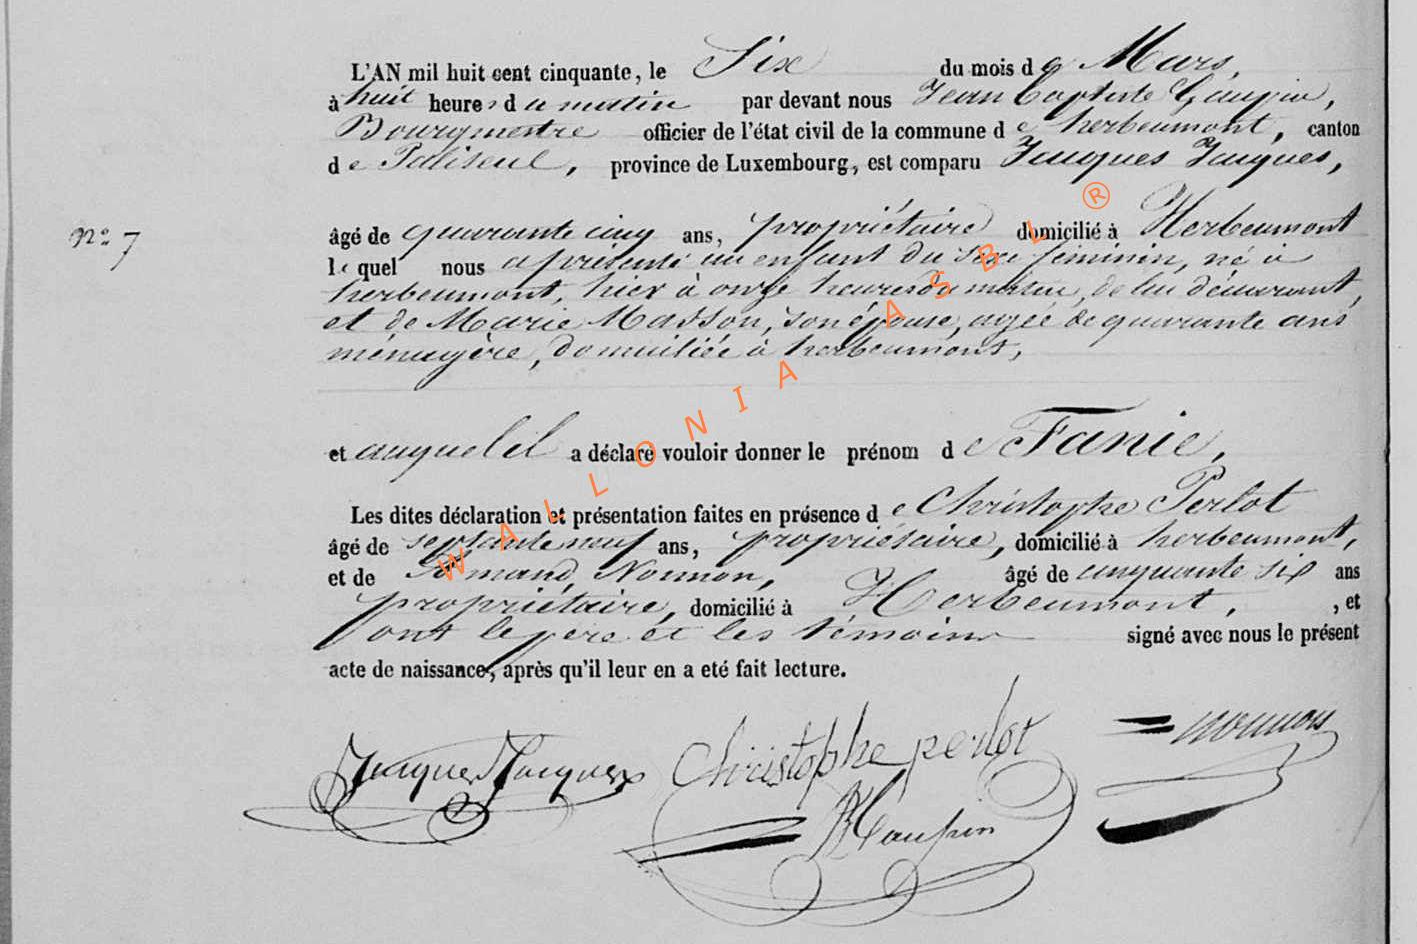 L'AN mil huit cent cinquante, le Six du mois de Mars,
à huit heures du matin par devant nous Jean Baptiste Gaupin,
Bourgmestre officier de l'état civil de la commune de herbeumont, canton
de Paliseul, province de Luxembourg, est comparu Jacques Jacques,
n° 7
âgé de quarante cinq ans, propriétaire domicilié à Herbeumont
lequel nous a présenté un enfant du sexe féminin, né à
herbeumont, hier à onze heures du matin, de lui déclarant,
et de Marie Masson, son épouse, agée de quarante ans
ménagère, domiciliée à herbeumont,
et auquel il a déclaré vouloir donner le prénom de Fanie,
Les dites déclaration et présentation faites en présence de Christophe Perlot
âgé de septante neuf ans, propriétaire, domicilié à herbeumont,
et de Nonnon, âgé de cinquante six ans
propriétaire, domicilié à Herbeumont, , et
ont le père et les témoins signé avec nous le présent
acte de naissance, après qu'il leur en a eté fait lecture.
Jacques Jacques Christophe perlot nonnon
JBGaupin
WALLONIA ASBL ®